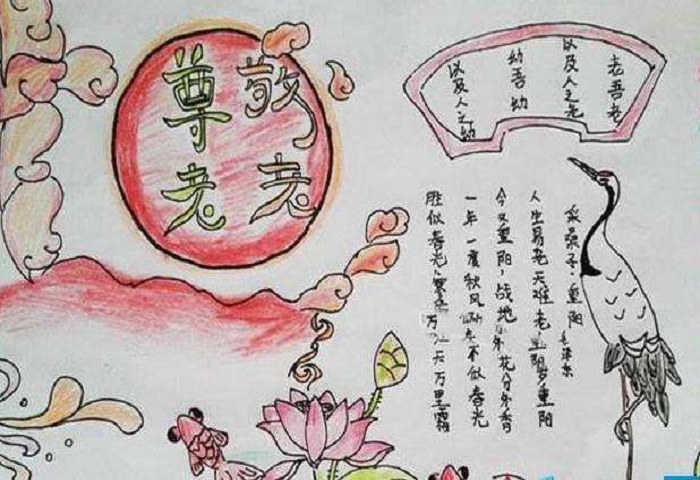 敬老
尊老
老吾老
以及人之老
幼吾幼
以及人之幼
采桑子·重阳
毛泽东
人生易老天难老,岁重阳
今又重阳,战地花分外香
一年一度秋风不似春光
胜似春光,寥天万里霜